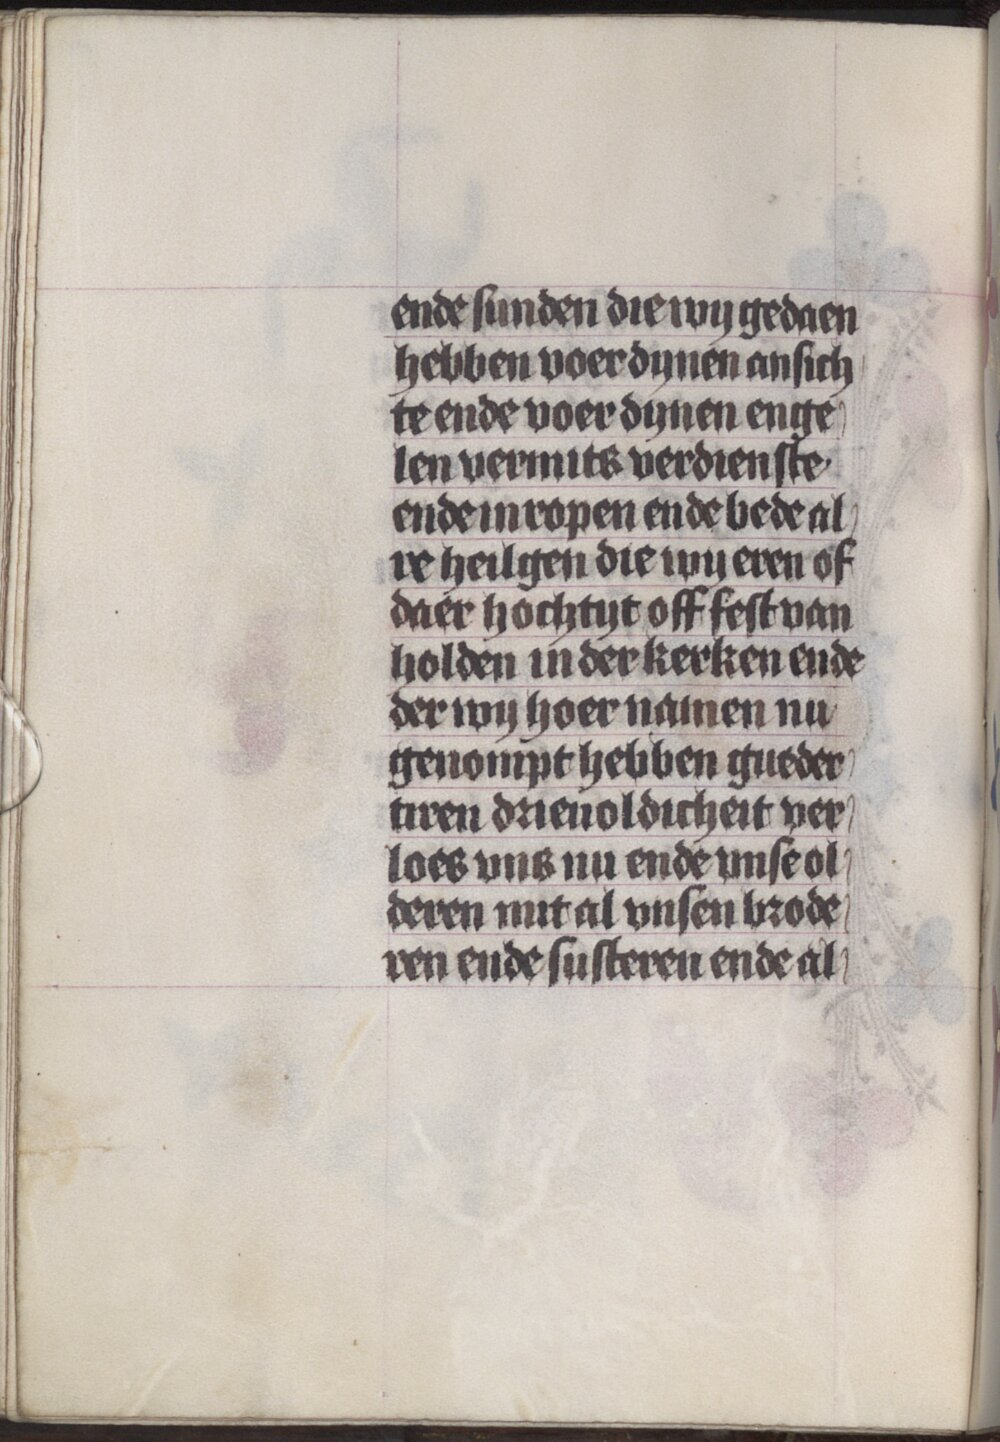 ende sunden die wy gedaen
hebben voer dynen ansich
te ende voer dynen enge
len vermits verdienste
ende inropen ende bede al
re heilgen die wy eren of
daer hochtyt off fest van
holden in der kerken ende
der wy hoer namen nu
genompt hebben gueder
tiren drieuoldicheit ver
loes vns nu ende vnse ol
deren mit al vnsen brode
ren ende susteren ende al